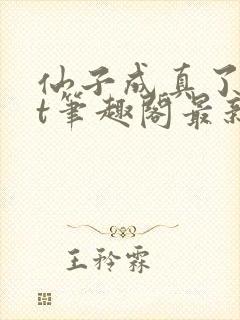 仙子成真了
t笔趣阁最新
王矜霖